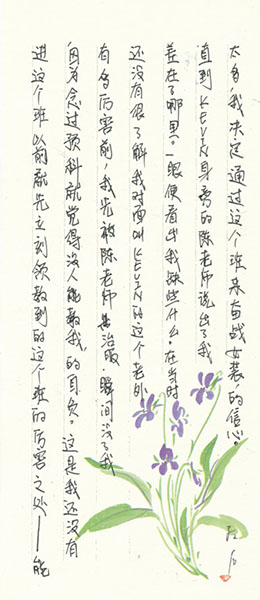 太多，我决定通过这个班来奋战女装，的信心。
直到KEVIN身旁的陈老师说出了我
差在了哪里。一眼便看出我缺些什么。在当时
还没有很了解我对面叫KEVIN的这个老外
有多厉害前，我先被陈老师给治服，瞬间没了我
因为念过预科就觉得没人能教我的自负。这是我还没有
进这个班以前就先立刻领教到的这个班的厉害之处——能